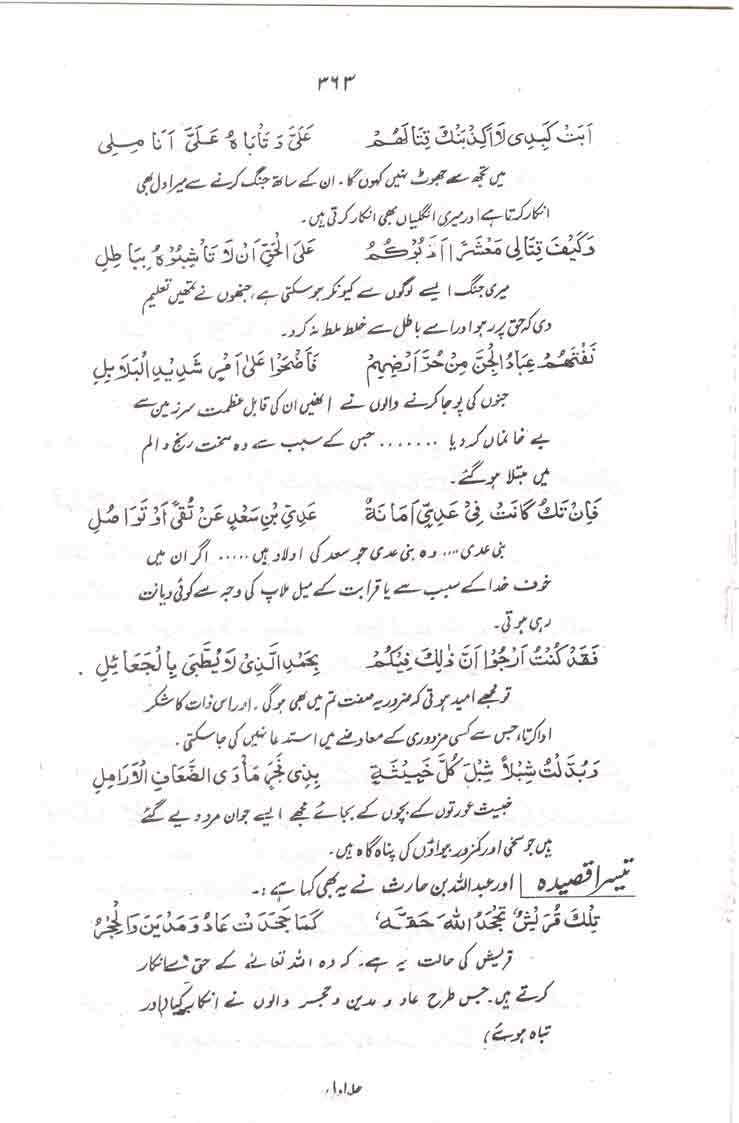 ۳۶۳
اَبَتْ كَبِدِى لَا اَكْذِبَنْكَ قِتَالَهُمْ عَلَىَّ وَ تَأْبَاهُ عَلَىَّ اَنَا مِلِى
میں تجھ سے جھوٹ نہیں کہوں گا۔ ان کے ساتھ جنگ کرنے سے میرا دل بھی
انکار کرتا ہے اور میری انگلیاں بھی انکار کرتی ہیں۔
وَكَيْفَ قِتَالِى مَعْشَرًا اَدَّبُوْكُمُ عَلَى الْحَقِّ اَنْ لَا تَأْشِبُوْهُ بِبَاطِلِ
میری جنگ ایسے لوگوں سے کیونکر ہو سکتی ہے، جنھوں نے تمھیں تعلیم
دی کہ حق پر رہو اور اسے باطل سے خلط ملط نہ کرو۔
نَفَتْهُمْ عِبَادُ الْجِنِّ مِنْ حُرِّ اَرْضِهِمْ فَاَضْحَوْا عَلىٰ اَمْرٍ شَدِيْدِ الْبَلَابِلِ
جنوں کی پوجا کرنے والوں نے انھیں ان کی قابل عظمت سرزمین سے
بے خانماں کر دیا ....... جس کے سبب سے وہ سخت رنج و الم
میں مبتلا ہو گئے۔
فَاِنْ تَكُ كَانَتْ فِىْ عَدِىٍّ اَمَانَةٌ عَدِىِّ بْنِ سَعْدٍ عَنْ تُقًى اَوْ تَوَاصُلِ
بنی عدی .... وہ بنی عدی جو سعد کی اولاد ہیں ..... اگر ان میں
خوف خدا کے سبب سے یا قرابت کے میل ملاپ کی وجہ سے کوئی دیانت
رہی ہوتی۔
فَقَدْ كُنْتُ اَرْجُوْا اَنَّ ذٰلِكَ فِيْكُمْ بِحَمْدِ الَّذِىْ لَا يُطَّبَى بِالْجَعَائِلِ .
تو مجھے امید ہوتی کہ ضرور یہ صفت تم میں بھی ہوگی۔ اور اس ذات کا شکر
ادا کرتا، جس سے کسی مزدوری کے معاوضے میں استدعا نہیں کی جا سکتی۔
وَبُدِّلْتُ شِبْلًا شِبْلَ كُلِّ خَبِيْثَةٍ بِذِىْ فَجَرٍ مَأْوَى الضِّعَافِ الْاَرَامِلِ
خبیث عورتوں کے بچوں کے بجائے مجھے ایسے جوان مرد دیے گئے
ہیں جو سخی اور کمزور بیواؤں کی پناہ گاہ ہیں۔
تیسرا قصیدہ اور عبداللہ بن حارث نے یہ بھی کہا ہے :۔
تِلْكَ قُرَيْشٌ تَجْحَدُ اللهَ حَقَّهٗ كَمَا جَحَدَتْ عَادٌ وَ مَدْيَنَ وَالْحِجْرُ
قریش کی حالت یہ ہے۔ کہ وہ اللہ تعالیٰ کے حق سے انکار
کرتے ہیں۔ جس طرح عاد و مدین و حجر والوں نے انکار کیا (اور
تباہ ہوئے)
جلد اول